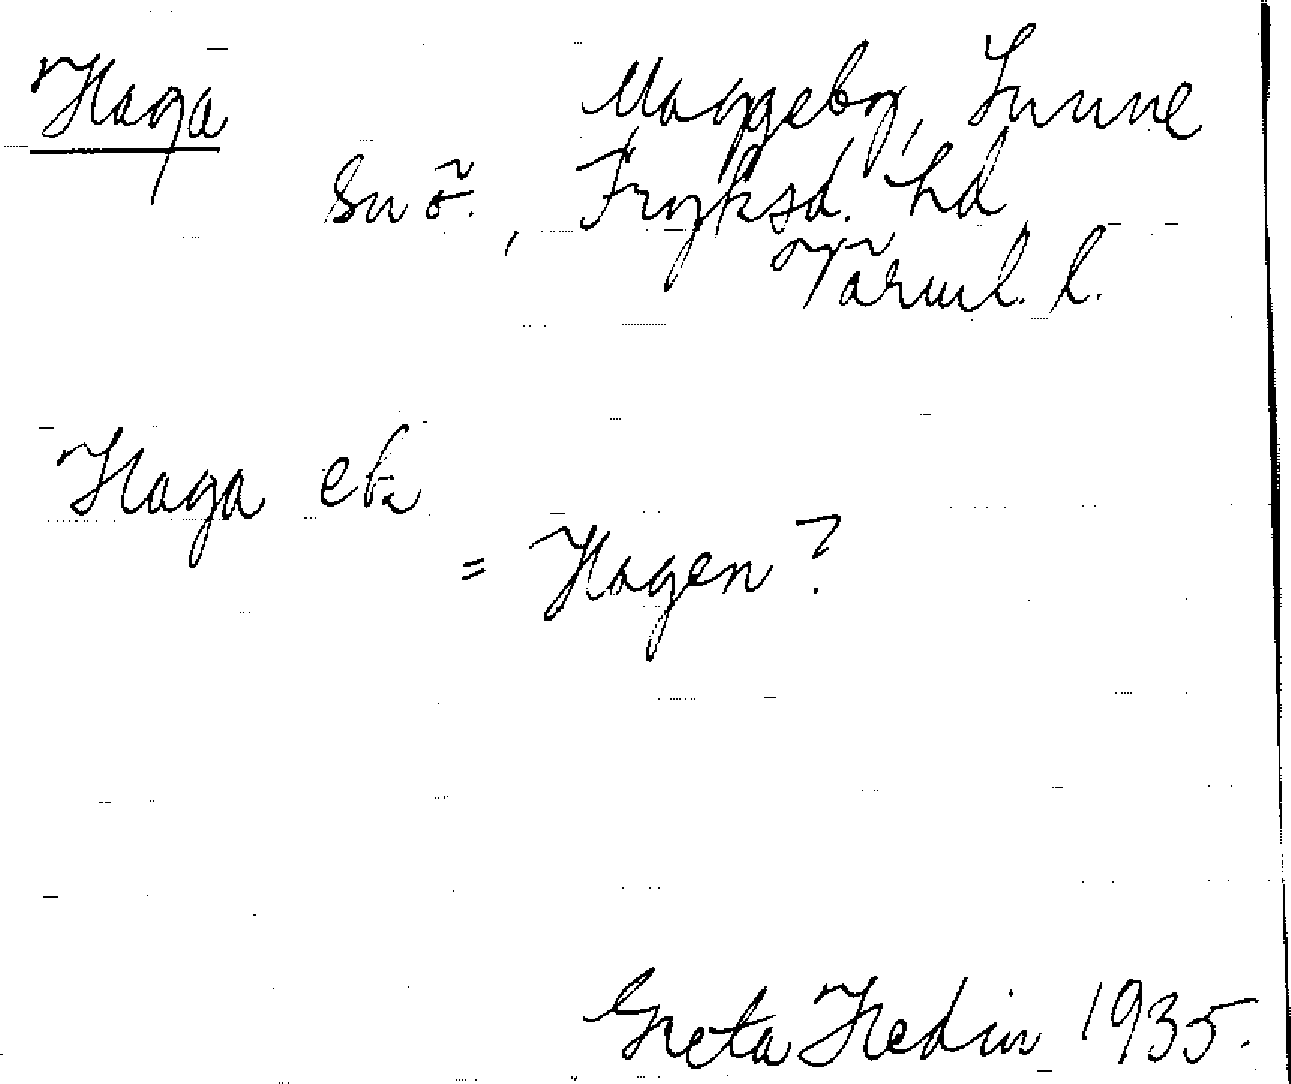 Haga Maggeby, Sunne
sn ö., Fryksd. hd
Värml. l.
Haga ek
= Hagen?
Greta Hedin 1935.